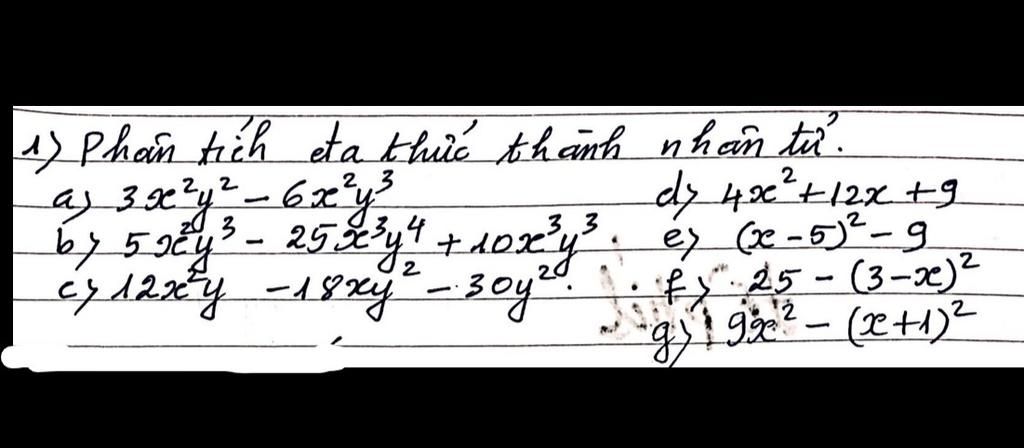 1) Phân tích đa thức thành nhân tử.
a) 3x²y² - 6x²y³
b) 5x²y³ - 25x³y⁴ + 10x³y³.
c) 12x²y - 18xy² - 30y².
d) 4x² + 12x + 9
e) (x - 5)² - 9
f) 25 - (3 - x)²
g) 9x² - (x + 1)²